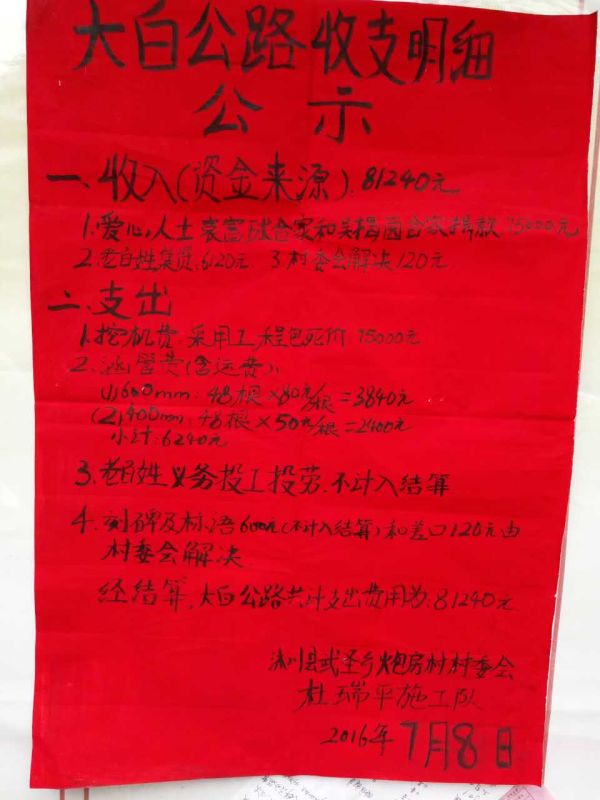 大白公路收支明细
公示
一、收入(资金来源):81240元
1.爱心人士袁富球合家和吴揭圆合家捐款75000元
2.老百姓集资:6120元 3.村委会解决120元
二、支出
1.挖机费:采用工程包死价75000元
2.涵管费(含运费):
(1)600mm:48根×80元/根=3840元
(2)400mm:48根×50元/根=2400元
小计:6240元
3.老百姓义务投工投劳,不计入结算
4.刻碑及标语600元(不计入结算)和差口120元由
村委会解决
经结算,大白公路共计支出费用为:81240元
县武圣乡炮房村村委会
杜瑞平施工队
2016年7月8日